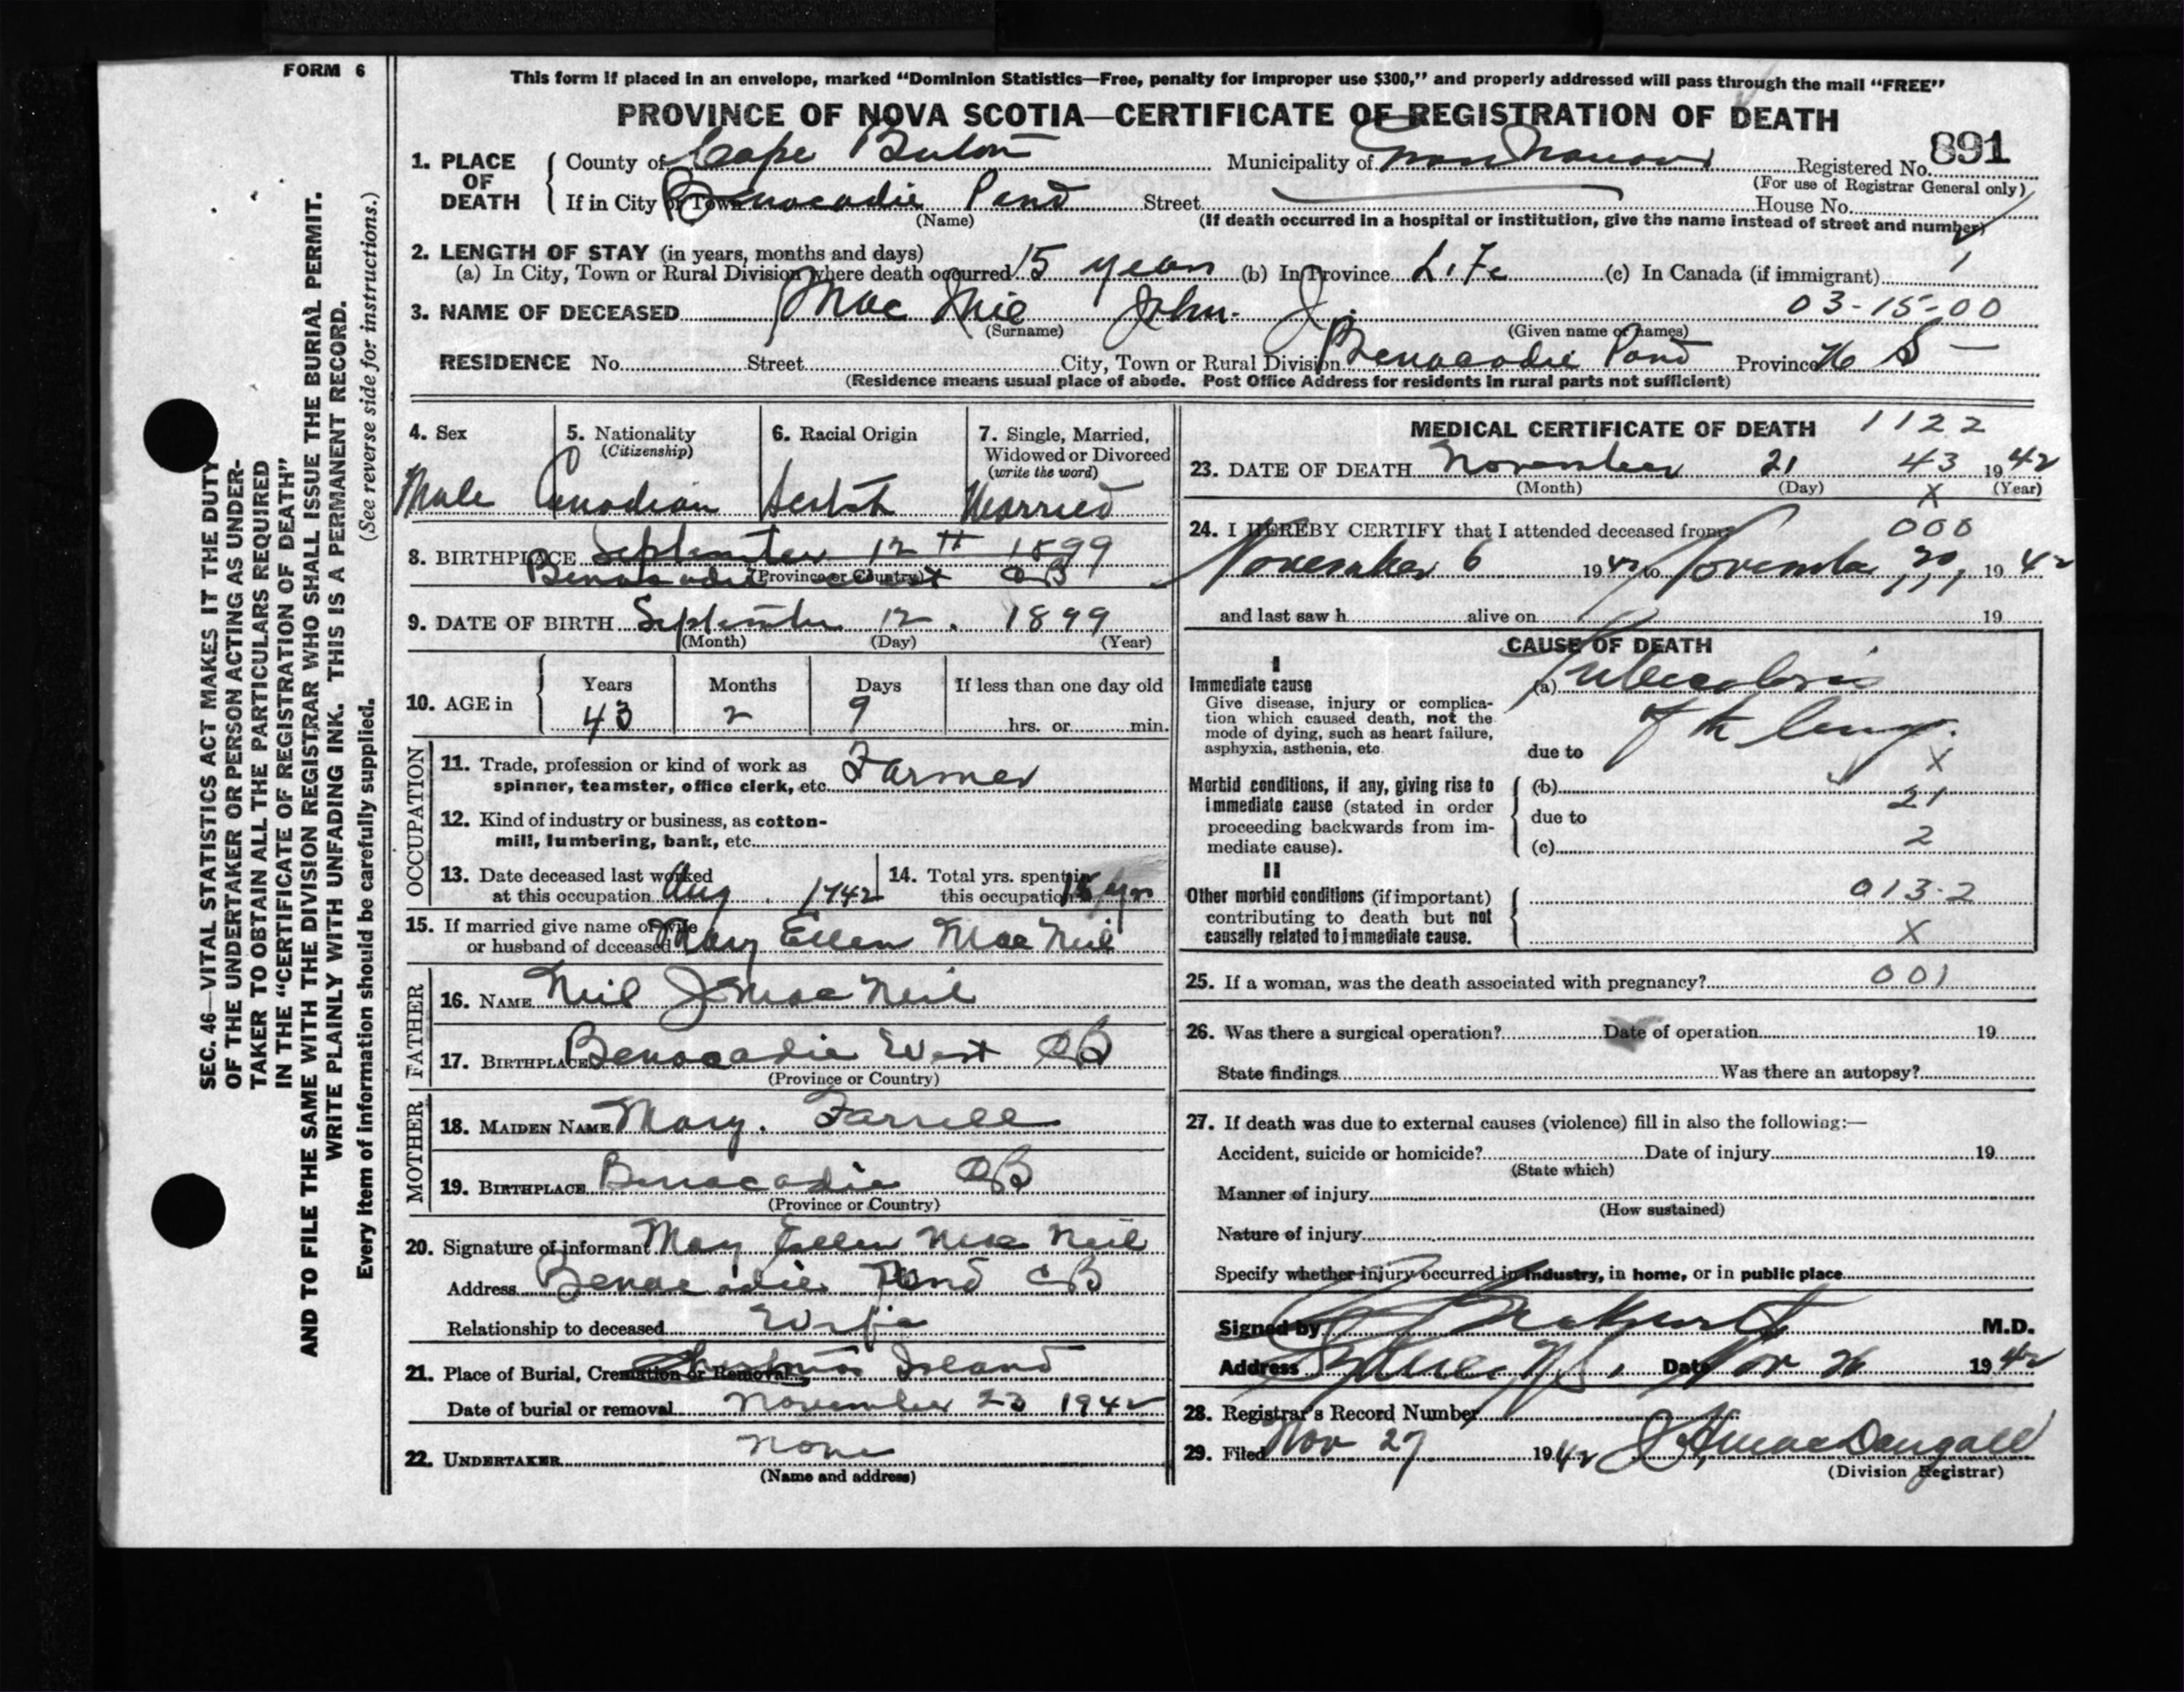 FORM 6
This form if placed in an envelope, marked “Dominion Statistics—Free, penalty for improper use $300,” and properly addressed will pass through the mail “FREE”
PROVINCE OF NOVA SCOTIA—CERTIFICATE OF REGISTRATION OF DEATH
1. PLACE OF DEATH
County of Cape Breton Municipality of Registered No. 891
(For use of Registrar General only)
If in City or Town Benacadie Pond Street House No.
(Name) (If death occurred in a hospital or institution, give the name instead of street and number)
2. LENGTH OF STAY (in years, months and days)
(a) In City, Town or Rural Division where death occurred 15 years (b) In Province Life (c) In Canada (if immigrant) 1
3. NAME OF DECEASED Mac Neil John J. 03-15-00
(Surname) (Given name or names)
RESIDENCE No. Street City, Town or Rural Division Benacadie Pond Province N S —
(Residence means usual place of abode. Post Office Address for residents in rural parts not sufficient)
4. Sex
Male
5. Nationality
(Citizenship)
Canadian
6. Racial Origin
Scotch
7. Single, Married, Widowed or Divorced
(write the word)
Married
8. BIRTHPLACE September 12th 1899
Benacadie West CB
(Province or Country)
9. DATE OF BIRTH September 12. 1899
(Month) (Day) (Year)
10. AGE in
Years Months Days If less than one day old
43 2 9 hrs. or min.
OCCUPATION
11. Trade, profession or kind of work as
spinner, teamster, office clerk, etc. Farmer
12. Kind of industry or business, as cotton-
mill, lumbering, bank, etc.
13. Date deceased last worked
at this occupation Aug. 1942
14. Total yrs. spent in
this occupation 15 yrs
15. If married give name of wife
or husband of deceased Mary Ellen Mac Neil
FATHER
16. NAME Neil J Mac Neil
17. BIRTHPLACE Benacadie West CB
(Province or Country)
MOTHER
18. MAIDEN NAME Mary. Farrell
19. BIRTHPLACE Benacadie CB
(Province or Country)
20. Signature of informant Mary Ellen Mac Neil
Address Benacadie Pond CB
Relationship to deceased Wife
21. Place of Burial, Cremation or Removal Christmas Island
Date of burial or removal November 23 1942
22. UNDERTAKER none
(Name and address)
MEDICAL CERTIFICATE OF DEATH 1122
23. DATE OF DEATH November 21 43 1942
(Month) (Day) X (Year)
24. I HEREBY CERTIFY that I attended deceased from 000
November 6 1942 to November 20, 1942
and last saw h alive on 19
CAUSE OF DEATH
I
Immediate cause
Give disease, injury or complica-
tion which caused death, not the
mode of dying, such as heart failure,
asphyxia, asthenia, etc.
(a) Tuberculosis
of the lung.
due to X
Morbid conditions, if any, giving rise to
immediate cause (stated in order
proceeding backwards from im-
mediate cause).
(b) 21
due to
(c) 2
II
Other morbid conditions (if important)
contributing to death but not
causally related to immediate cause.
013-2
X
25. If a woman, was the death associated with pregnancy? 001
26. Was there a surgical operation? Date of operation 19
State findings Was there an autopsy?
27. If death was due to external causes (violence) fill in also the following:—
Accident, suicide or homicide? Date of injury 19
(State which)
Manner of injury
(How sustained)
Nature of injury
Specify whether injury occurred in industry, in home, or in public place
Signed by M.D.
Address Date Nov 26 1942
28. Registrar's Record Number
29. Filed Nov 27 1942 MacDougall
(Division Registrar)
SEC. 46—VITAL STATISTICS ACT MAKES IT THE DUTY
OF THE UNDERTAKER OR PERSON ACTING AS UNDER-
TAKER TO OBTAIN ALL THE PARTICULARS REQUIRED
IN THE “CERTIFICATE OF REGISTRATION OF DEATH”
AND TO FILE THE SAME WITH THE DIVISION REGISTRAR WHO SHALL ISSUE THE BURIAL PERMIT.
WRITE PLAINLY WITH UNFADING INK. THIS IS A PERMANENT RECORD.
Every item of information should be carefully supplied. (See reverse side for instructions.)